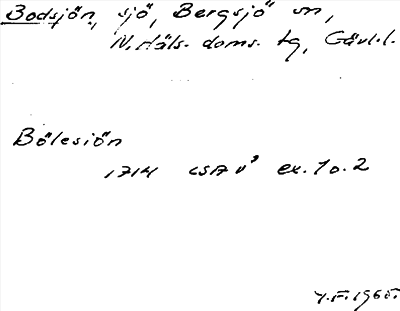 Bodsjön, sjö, Bergsjö sn,
N. Häls. doms. tg, Gävl.l.
Bölesjön
1714 LSA v³ ex. 1 o. 2
Y.F. 1965.